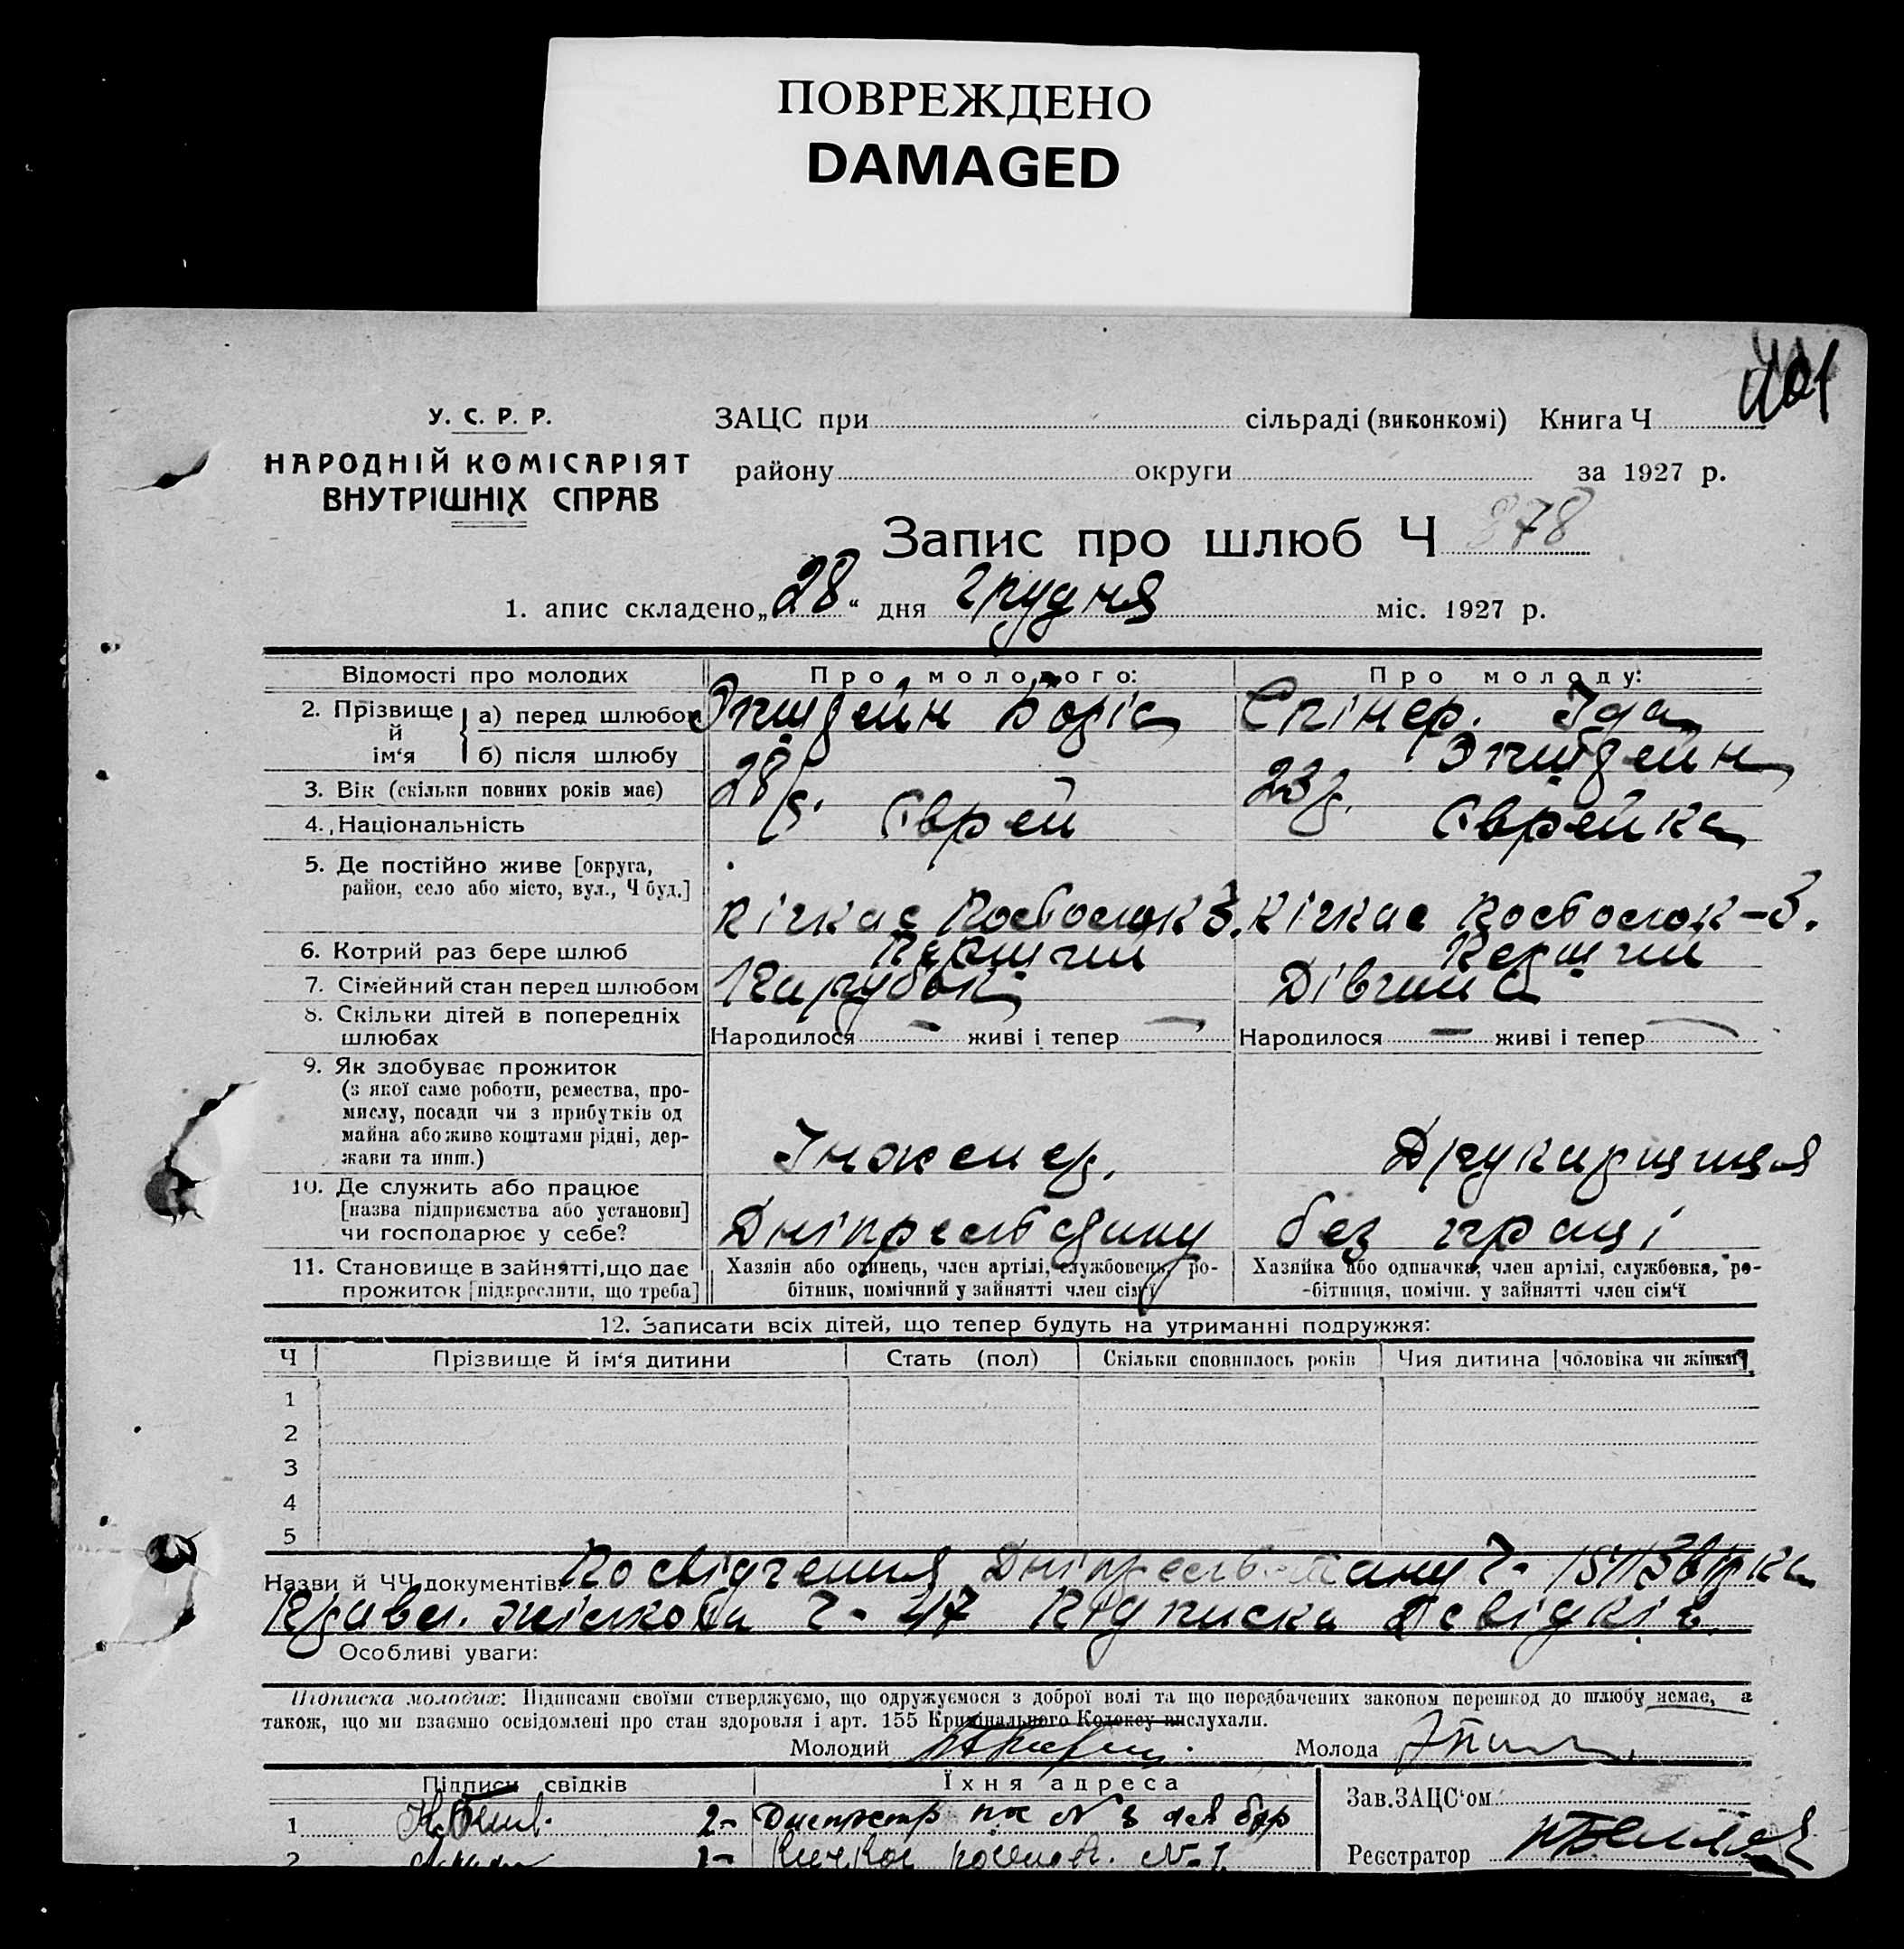 ПОВРЕЖДЕНО
DAMAGED
401
У. С. Р. Р.
НАРОДНІЙ КОМІСАРІЯТ
ВНУТРІШНІХ СПРАВ
ЗАЦС при сільраді (виконкомі) Книга Ч
району округи за 1927 р.
Запис про шлюб Ч 878
1. апис складено „28“ дня грудня міс. 1927 р.
Відомості про молодих Про молодого: Про молоду:
2. Прізвище й ім‘я
а) перед шлюбом Эпштейн Боріс Спінер. Іда
б) після шлюбу Эпштейн
3. Вік (скільки повних років має) 28 р. 23 р.
4. Національність Єврей Єврейка
5. Де постійно живе [округа,
район, село або місто, вул., Ч буд.] Кічкас Посьолок 3. Кічкас Посьолок-3.
6. Котрий раз бере шлюб Перший Перший
7. Сімейний стан перед шлюбом Парубок Дівчина
8. Скільки дітей в попередніх
шлюбах Народилося — живі і тепер — Народилося — живі і тепер —
9. Як здобуває прожиток
(з якої саме роботи, ремества, про-
мислу, посади чи з прибутків од
майна або живе коштами рідні, дер-
жави та инш.) Інженер. Друкарщиця
10. Де служить або працює
[назва підприємства або установи]
чи господарює у себе? без праці
11. Становище в зайнятті, що дає
прожиток [підкреслити, що треба]
Хазяін або одинець, член артілі, службовець, ро-
бітник, помічний у зайнятті член сім‘ї
Хазяйка або одначка, член артілі, службовка, ро-
-бітниця, помічн. у зайнятті член сім‘ї
12. Записати всіх дітей, що тепер будуть на утриманні подружжя:
Ч Прізвище й ім‘я дитини Стать (пол) Скільки сповнилось років Чия дитина [чоловіка чи жінки]
1
2
3
4
5
Назви й ЧЧ документів: Посвідчення
ч- 47 Підписка свідків
Особливі уваги:
Підписка молодих: Підписами своїми стверджуємо, що одружуємося з доброї волі та що передбачених законом перешкод до шлюбу немає, а
також, що ми взаємно освідомлені про стан здоровля і арт. 155 Кримінального Кодексу вислухали.
Молодий Молода
Підписи свідків Їхня адреса Зав.ЗАЦС‘ом
1 2-
2 1- Реєстратор